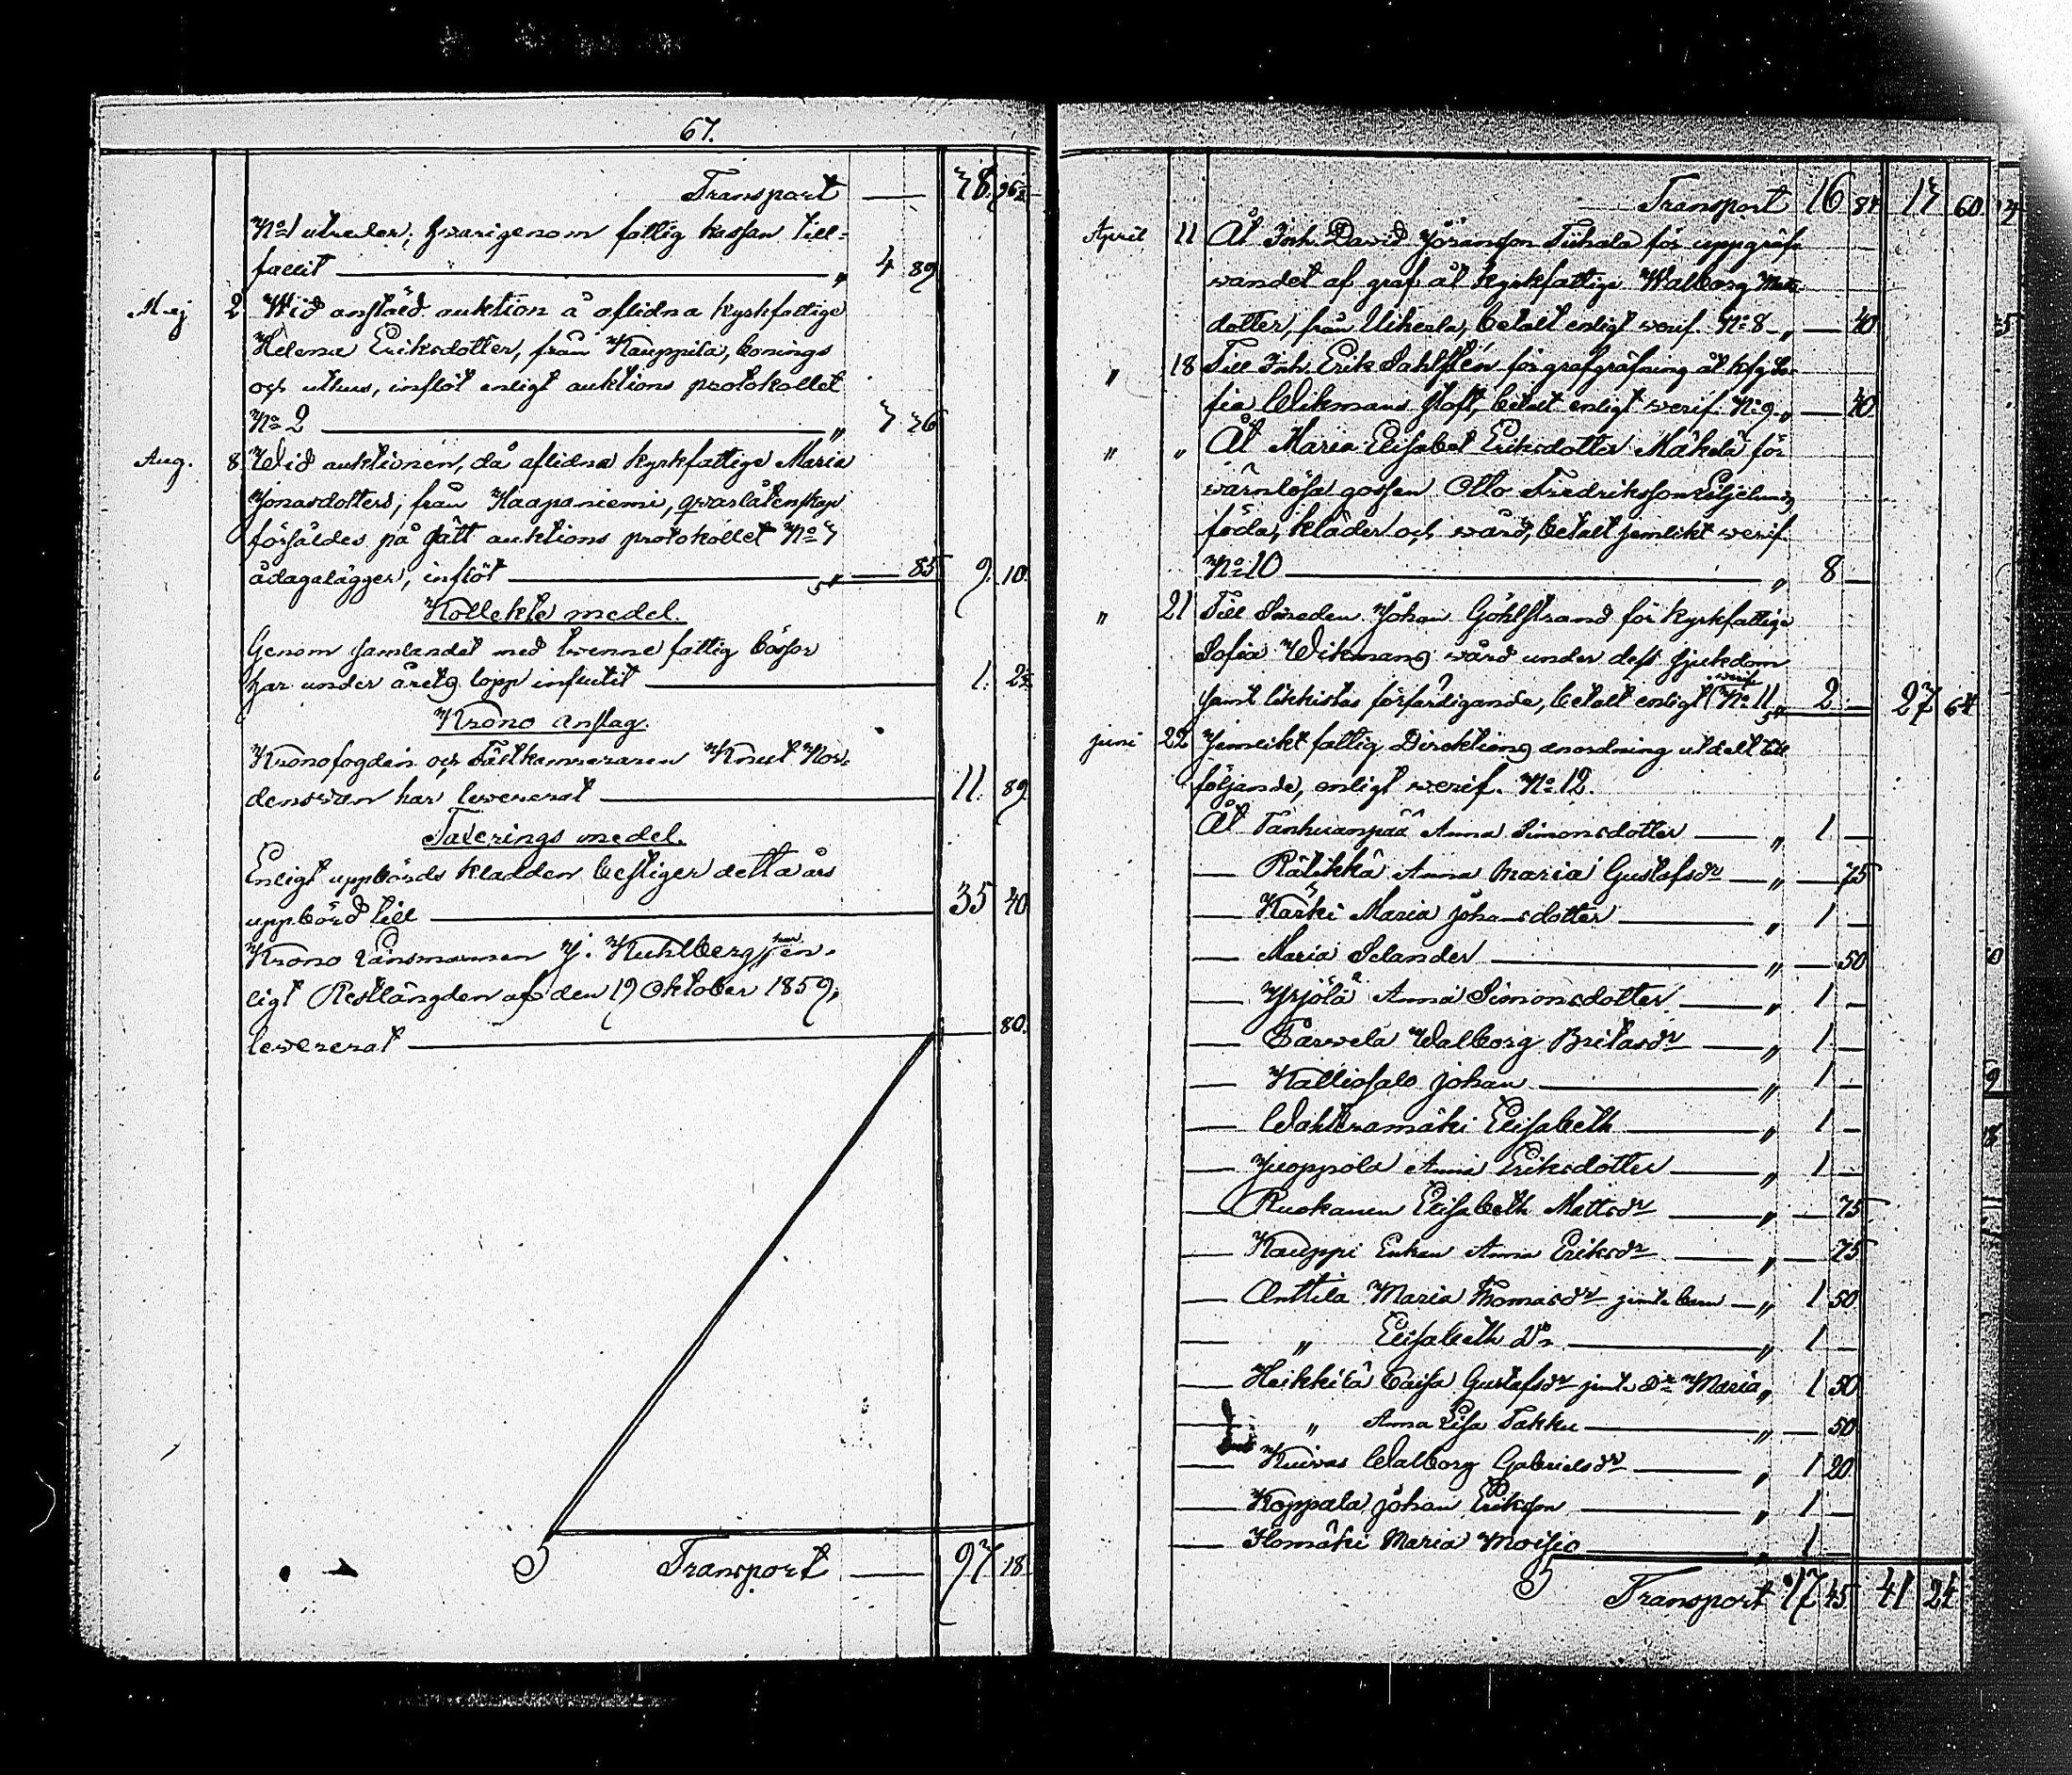 67.
Transport — 38. 96½
No 1 utreder, hvarigenom fattig kassan till-
fallit — „ 4 89
Maj 2 Wid anstäld auktion å aflidna kyrkfattige
Helena Eriksdotter, från Kauppila, bonings
och uthus, inflöt enligt auktions protokollet
No 2 — „ 3 36
Aug. 8 Wid auktionen, då aflidna kyrkfattige Maria
Jonasdotters, från Haapaniemi, qvarlåtenskap
försåldes på sätt auktions protokollet No 3
ådagalägger, inflöt — „ — 85 9. 10.
Kollekte medel.
Genom samlandet med tvenne fattig bössor
har under årets lopp influtit — 1. 2½
Krono anslag.
Kronofogden och Fältkamreraren Knut Nor-
densvan har levererat — 11. 89
Taxerings medel.
Enligt uppbörds kladden bestiger detta års
uppbörd till — 35 40
Krono Länsmannen J. Kuhlberg har en-
ligt Restlängden af den 19 Oktober 1859,
levererat — 80.
Transport — 97 18
Transport 16 84 13 60
April 11 Åt Inh. David Jöransson Tuhala för uppgräf-
wandet af graf åt kyrkfattige Walborg Matts
dotter, från Uikeala, betalt enligt verif. No 8 „ — 40
„ 18 Till Inh. Erik Sahlstén för grafgräfning åt kfg So-
fia Wikmans stoft, betalt enligt verif. No 9 „ — 40
„ „ Åt Maria Elisabet Eriksdotter Mäkelä för
värnlösa gossen Otto Fredriksson Liljelunds
föda, kläder och vård, betalt jemlikt verif
No 10 — „ 8 —
„ 21 Till Smeden Johan Göhlstrand för kyrkfattige
Sofia Wikmans vård under dess sjukdom
samt likkistas förfärdigande, betalt enligt verif No 11 „ 2 — 27 64
Juni 22 Jemlikt fattig Direktions anordning utdelt till
följande, enligt verif. No 12.
Åt Tanhuanpää Anna Simonsdotter — „ 1 —
— Rätikkä Anna Maria Gustafsdr — „ — 75
— Karki Maria Johansdotter — „ 1 —
— Maria Selander — „ — 50
— Yrjölä Anna Simonsdotter — „ 1 —
— Tarvela Walborg Britasdr — „ 1 —
— Kalliosalo Johan — „ 1 —
— Wahteramäki Elisabeth — „ 1 —
— Juoppola Anna Eriksdotter — „ 1 —
— Ruokanen Elisabeth Mattsdr — „ — 75
— Kauppi Enkan Anna Eriksdr — „ — 75
— Anttila Maria Thomasdr jemte barn — „ 1 50
— „ Elisabeth Dr — „ 1 —
— Heikkilä Caisa Gustafsdr jemte dr Maria „ 1 50
— „ Anna Lisa Takku — „ — 50
— Kuivas Walborg Gabrielsdr — „ 1 20
— Koppala Johan Eriksson — „ 1 —
— Ilomäki Maria Moisio — „ 1 —
Transport 17 45 41 24